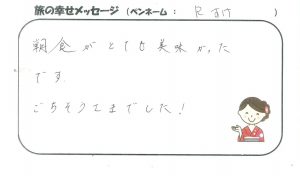 旅の幸せメッセージ（ペンネーム： ）
朝食がとても美味かった
です
ごちそうさまでした！